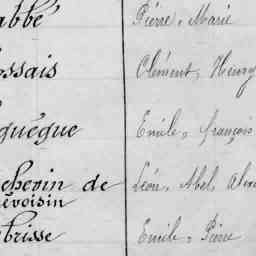 abbé Pierre, Marie
ossais Clément, Henry
quéque Emile, françois
chevin de Léon, Abel,
évoisin
brisse Emile, Pierre